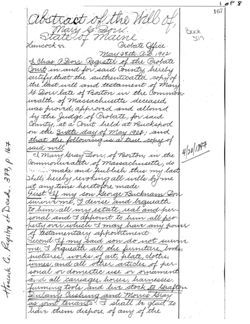 1 of 8
867
Book
Abstract of the Will of
Mary G. Dorr
State of Maine
Hancock ss. Probate Office
May 28th A.D. 1902
I Chas P. Dorr Register of the Probate
Court in and for said County hereby
certify that the authenticated copy of
the last will and testament of Mary
G. Dorr late of Boston in the Common
wealth of Massachusetts deceased
was proved, approved and allowed
by the Judge of Probate for said
County, at a Court held at Bucksport
on the day of May 1902, and
that the following is a true copy of
said will
I Mary Gray Dorr of Boston in the
Commonwealth of Massachusetts, do
make and publish this my last
Will hereby revoking all wills by me
at any time heretofore made
First If my son George Bucknam Dorr
survive me, I devise and bequeath
to him all my estate, real and per
sonal and I appoint to him all pro
perty over which I may have any power
of testamentary appointment
Second If my said son do not survive
me I bequeath all the furniture, books
pictures, works of art, plate, clothes
and all other articles of per
sonal or domestic use or ornament
and all carriages, horses, harnesses
farming tools and live stock to
and Morris Gray
I shall be glad to
have them dispose of any of the
Hancock Co. Registry of Deeds, 379, p. 867